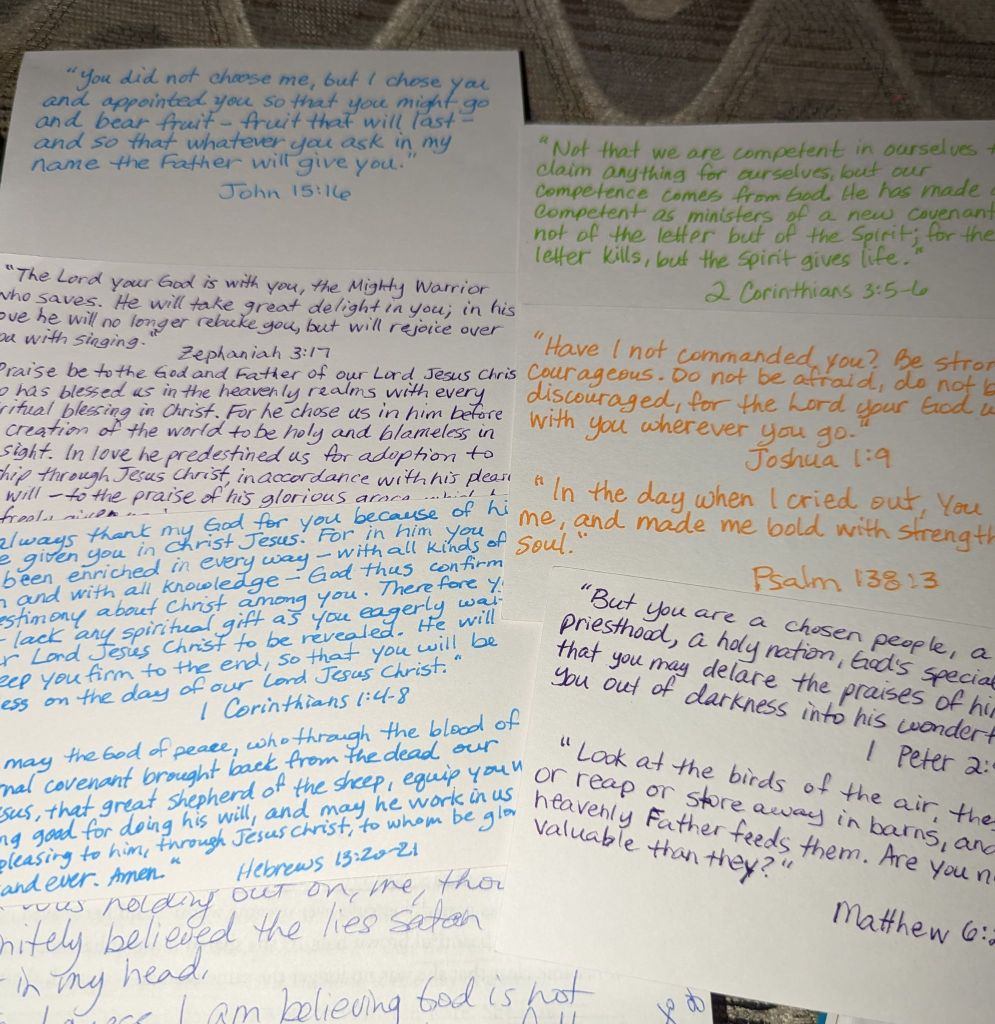 "You did not choose me, but I chose you
and appointed you so that you might go
and bear fruit - fruit that will last -
and so that whatever you ask in my
name the Father will give you."
John 15:16
"The Lord your God is with you, the Mighty Warrior
who saves. He will take great delight in you; in his
ove he will no longer rebuke you, but will rejoice over
ou with singing."
Zephaniah 3:17
Praise be to the God and Father of our Lord Jesus Chris
o has blessed us in the heavenly realms with every
ritual blessing in Christ. For he chose us in him before
creation of the world to be holy and blameless in
sight. In love he predestined us for adoption to
hip through Jesus Christ, in accordance with his pleas
will - to the praise of his glorious
always thank my God for you because of hi
e given you in Christ Jesus. For in him you
been enriched in every way - with all kinds of
h and with all knowledge - God thus confirm
estimony about Christ among you. Therefore y
lack any spiritual gift as you eagerly wai
r Lord Jesus Christ to be revealed. He will
eep you firm to the end, so that you will be
ess on the day of our Lord Jesus Christ."
1 Corinthians 1:4-8
may the God of peace, who through the blood of
nal covenant brought back from the dead our
sus, that great shepherd of the sheep, equip you w
ng good for doing his will, and may he work in us
pleasing to him, through Jesus Christ, to whom be glor
and ever. Amen."
Hebrews 13:20-21
was holding out on me, thou
nitely believed the lies Satan
in my head.
I am believing God is not
"Not that we are competent in ourselves t
claim anything for ourselves, but our
competence comes from God. He has made
competent as ministers of a new covenant
not of the letter but of the Spirit; for the
letter kills, but the Spirit gives life."
2 Corinthians 3:5-6
"Have I not commanded you? Be stron
courageous. Do not be afraid, do not b
discouraged, for the Lord your God w
with you wherever you go."
Joshua 1:9
"In the day when I cried out, You
me, and made me bold with strength
soul."
Psalm 138:3
"But you are a chosen people, a
priesthood, a holy nation, God's special
that you may delare the praises of hi
you out of darkness into his wonderf
1 Peter 2:
"Look at the birds of the air, the
or reap or store away in barns, and
heavenly Father feeds them. Are you n
valuable than they?"
Matthew 6:2